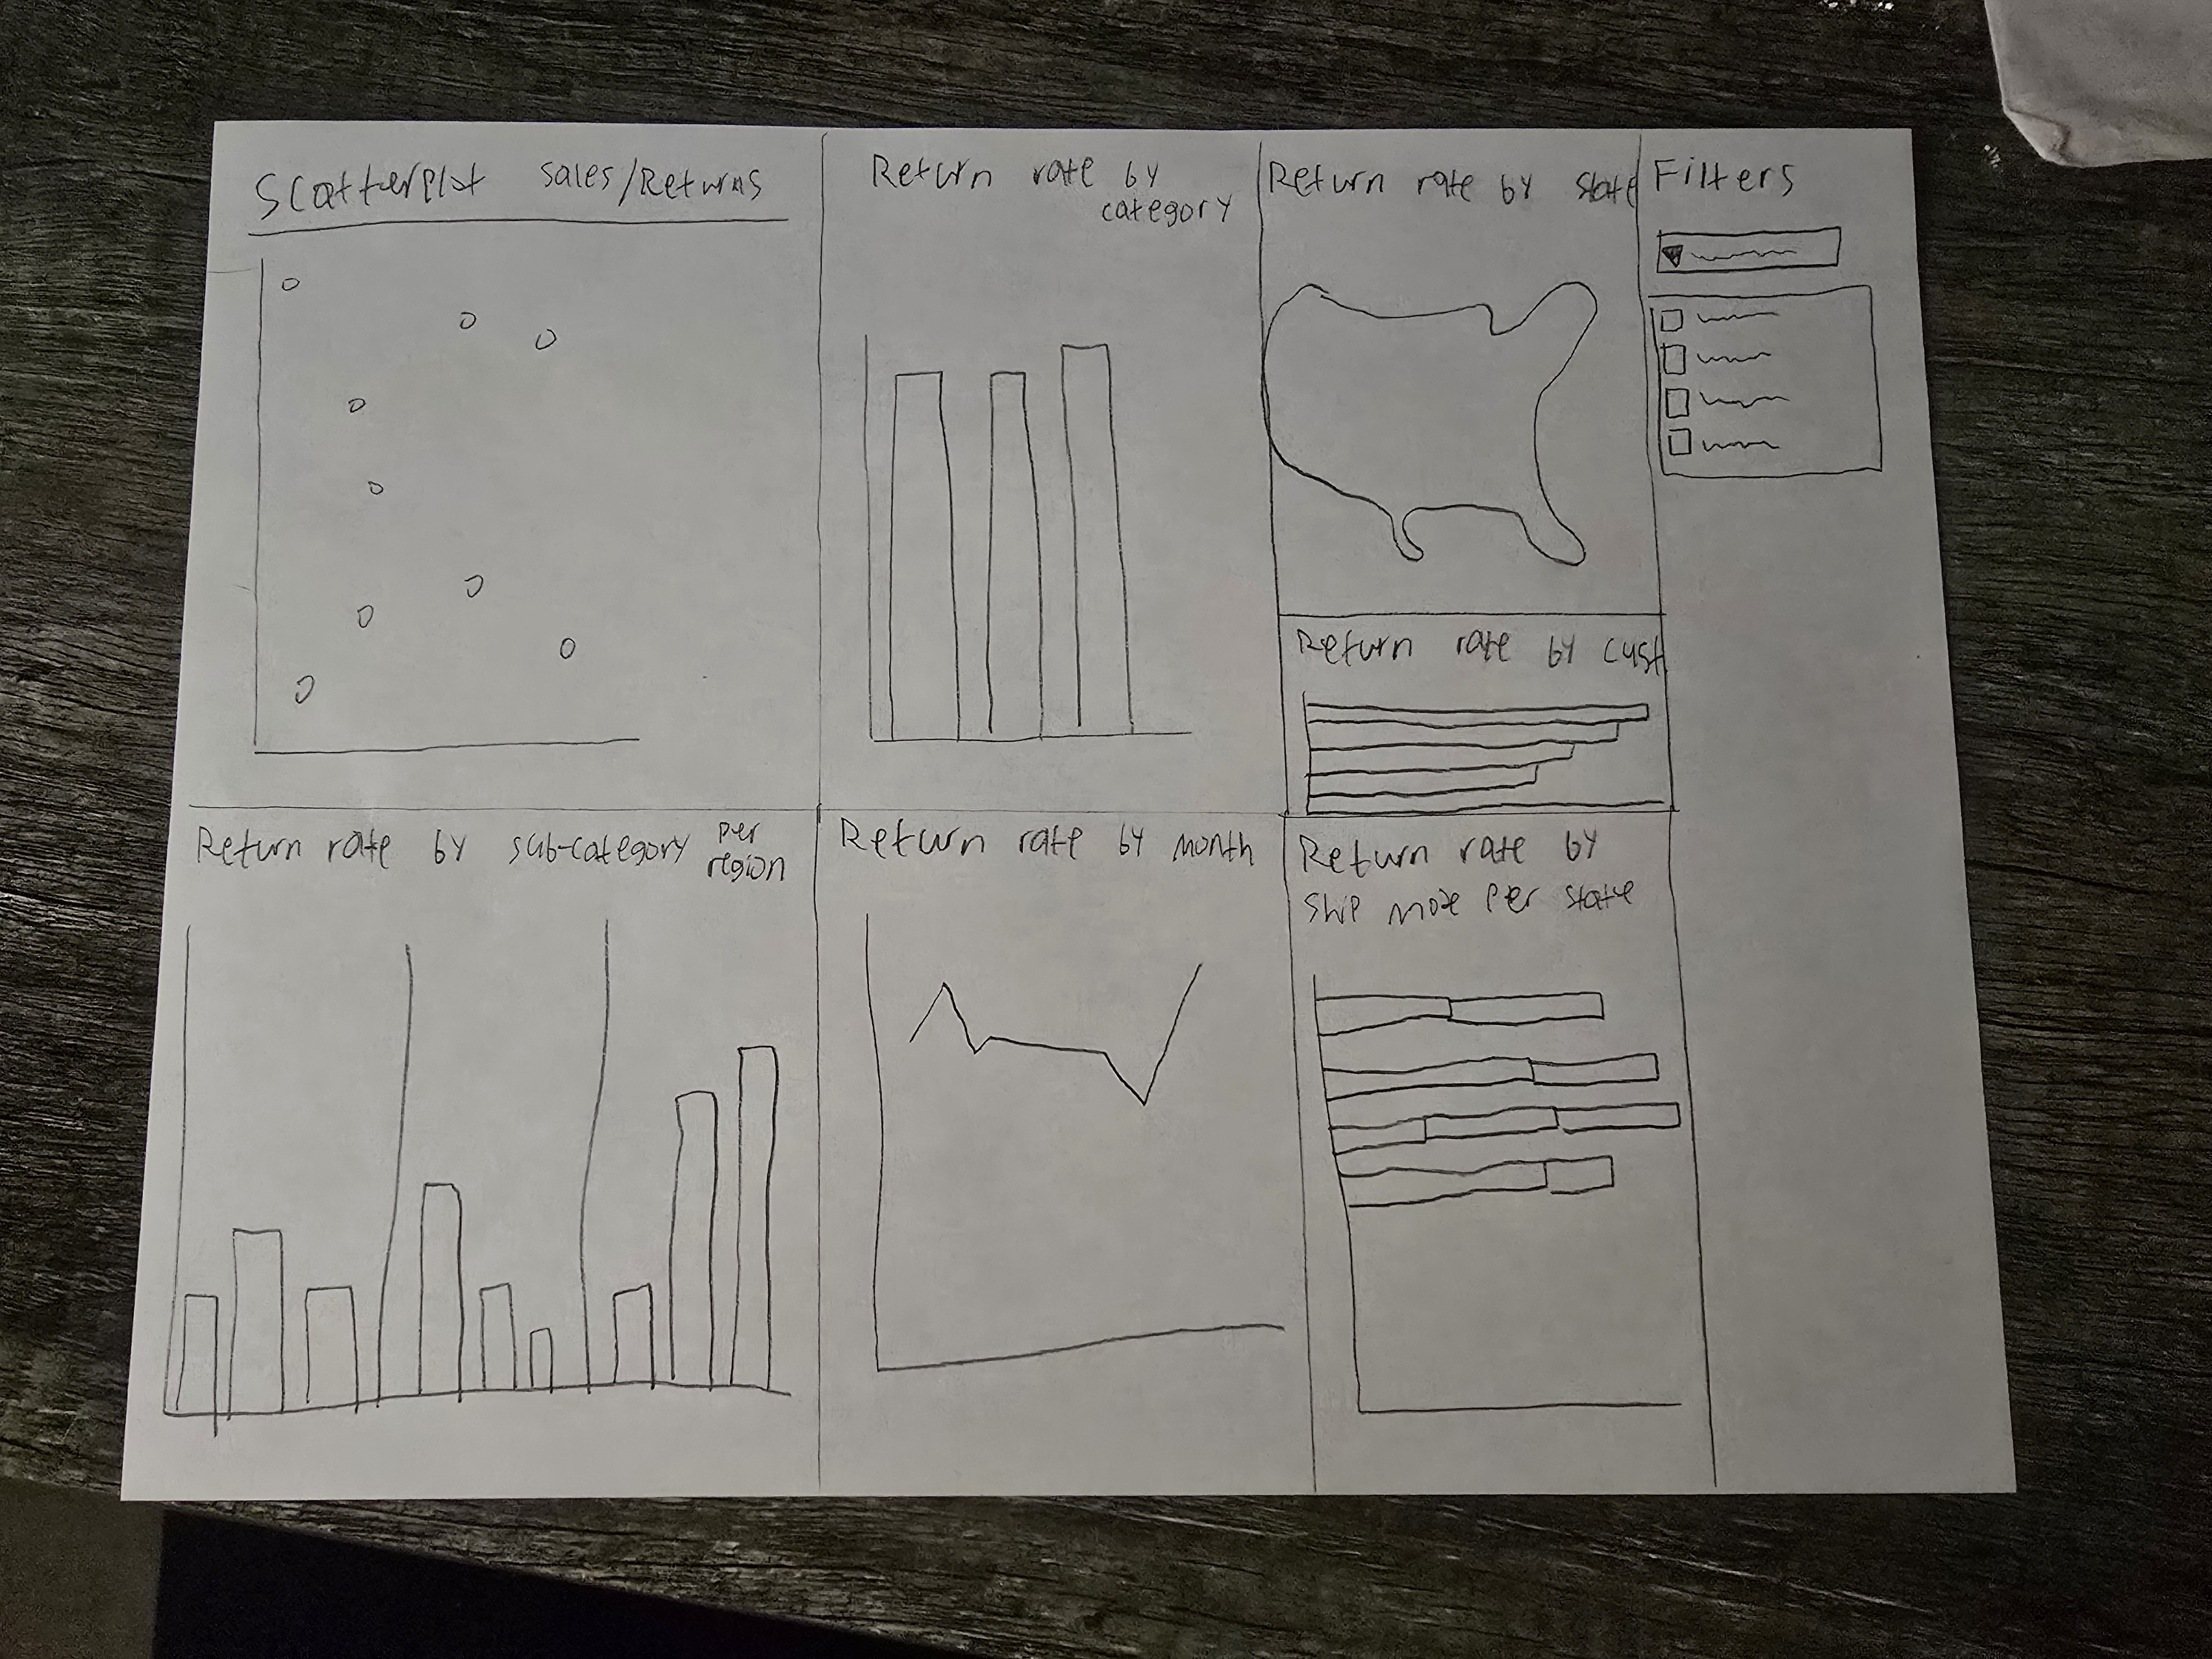 Scatterplot sales/Returns
Return rate by
category
Return rate by state
Filters
Return rate by cust
Return rate by sub-category per
region
Return rate by month
Return rate by
ship mode per state